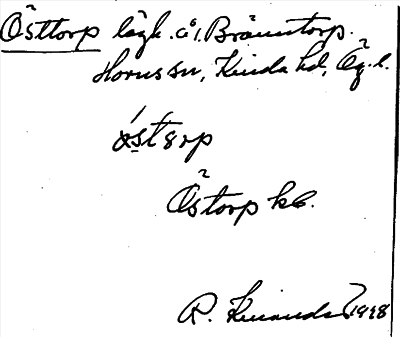 Östtorp lägh. å 1. Bränntorp.
Horns sn, Kinda hd, Ög.l.
östorp
Östorp kb.
R. 1918